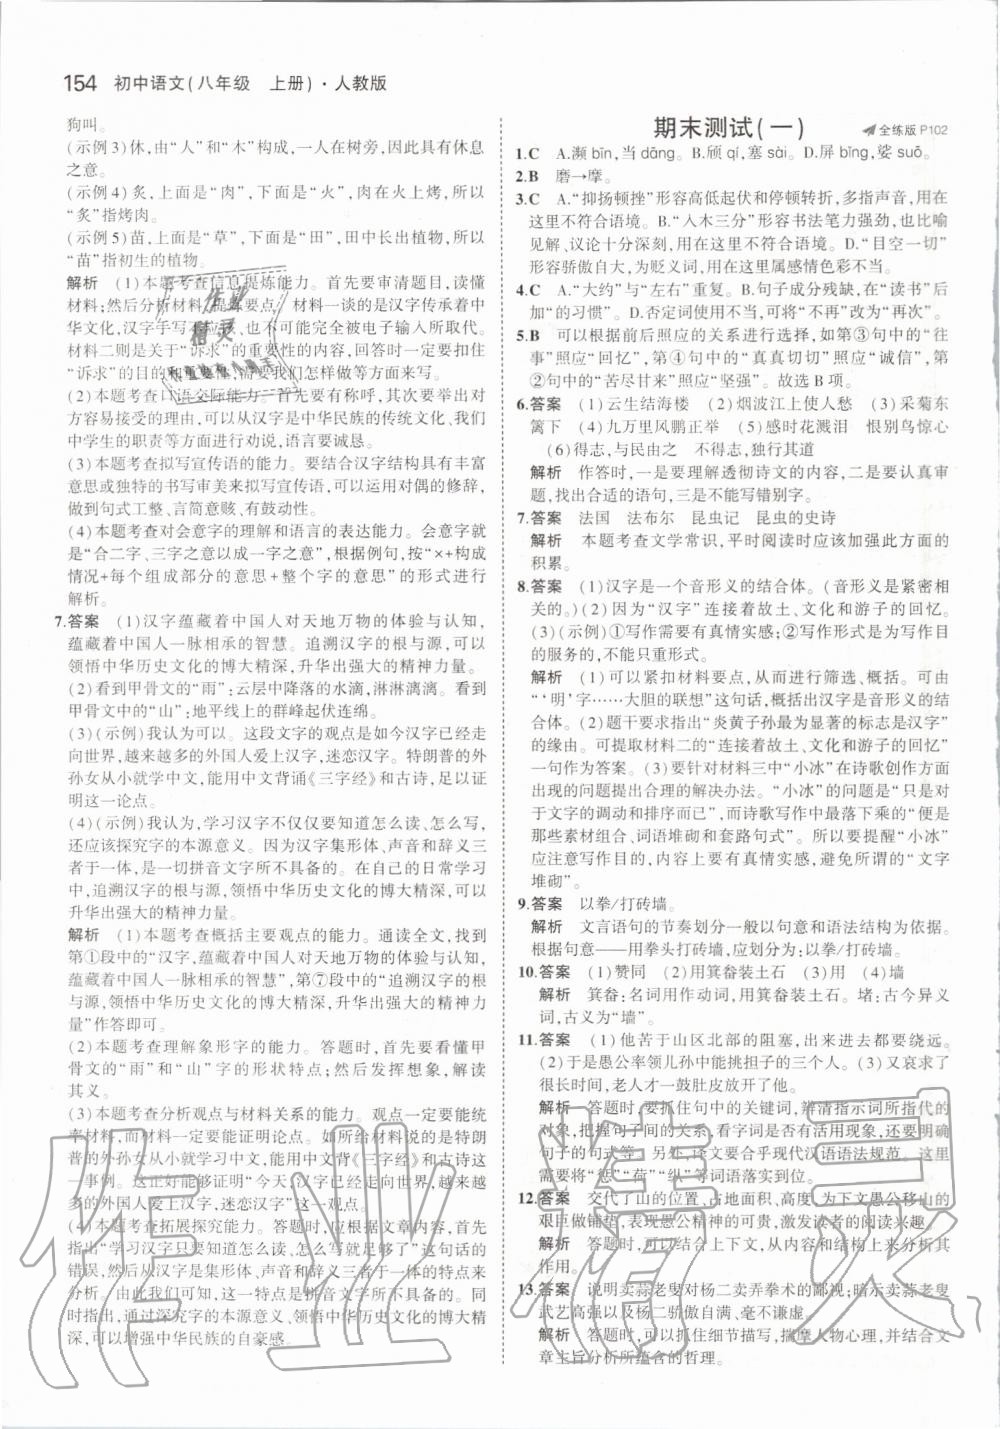 154 初中语文(八年级 上册)·人教版
狗叫。
(示例3)休,由“人”和“木”构成,一人在树旁,因此具有休息
之意。
(示例4)炙,上面是“肉”,下面是“火”,肉在火上烤,所以
“炙”指烤肉。
(示例5)苗,上面是“草”,下面是“田”,田中长出植物,所以
“苗”指初生的植物。
解析 (1)本题考查信息提炼能力。首先要审清题目,读懂
材料;然后分析材料,提炼要点。材料一谈的是汉字传承着中
华文化,汉字手写不可少,不会也不能被电子输入所取代。
材料二则是关于“诉求”的重要性的内容,回答时一定要扣住
“诉求”的重要性,需要我们怎样做等方面来写。
(2)本题考查口语交际能力。首先要有称呼,其次要举出对
方容易接受的理由,可以从汉字是中华民族的传统文化,我们
中学生的职责等方面进行劝说,语言要诚恳。
(3)本题考查拟写宣传语的能力。要结合汉字结构具有丰富
意思或独特的书写审美来拟写宣传语,可以用对偶的修辞,
做到句式工整、言简意赅、有鼓动性。
(4)本题考查对会意字的理解和语言的表达能力。会意字就
是“合二字、三字之意以成一字之意”,根据例句,按“×+构成
情况+每个组成部分的意思+整个字的意思”的形式进行
解析。
7.答案 (1)汉字蕴藏着中国人对天地万物的体验与认知,
蕴藏着中国人一脉相承的智慧。追溯汉字的根与源,可以
领悟中华历史文化的博大精深,升华出强大的精神力量。
(2)看到甲骨文的“雨”:云层中降落的水滴,淋淋漓漓。看到
甲骨文中的“山”:地平线上的群峰起伏连绵。
(3)(示例)我认为可以。这段文字的观点是如今汉字已经走
向世界,越来越多的外国人爱上汉字,迷恋汉字。特朗普的
外孙女从小就学中文,能用中文背诵《三字经》和古诗,足以证
明这一论点。
(4)(示例)我认为,学习汉字不仅仅要知道怎么读、怎么写,
还应该探究字的本源意义。因为汉字集形体、声音和辞义三
者于一体,是一切拼音文字所不具备的。在自己的日常学习
中,追溯汉字的根与源,领悟中华历史文化的博大精深,可以
升华出强大的精神力量。
解析 (1)本题考查概括主要观点的能力。通读全文,找到
第①段中的“汉字,蕴藏着中国人对天地万物的体验与认知,
蕴藏着中国人一脉相承的智慧”,第⑦段中的“追溯汉字的根
与源,领悟中华历史文化的博大精深,升华出强大的精神力
量”作答即可。
(2)本题考查理解象形字的能力。答题时,首先要看懂甲
骨文的“雨”和“山”字的形状特点;然后发挥想象,解读
其义。
(3)本题考查分析观点与材料关系的能力。观点一定要能统
率材料,而材料一定要能证明论点。如所给材料说的是特朗
普的外孙女从小就学中文,能用中文背《三字经》和古诗这
一事例。这正好能够证明“今天,汉字已经走向世界,越来越
多的外国人爱上汉字,迷恋汉字”这一观点。
(4)本题考查拓展探究能力。答题时,应根据文章内容,首先
指出“学习汉字只要知道怎么读、怎么写就行”这句话的
错误,然后从汉字是集形体、声音和辞义三者于一体的特点来
分析。由此我们可知,这一特点是拼音文字所不具备的。
同时指出,通过深究字的本源意义、领悟中华历史文化的博大精深,
可以增强中华民族的自豪感。
期末测试(一) 全练版 P102
1.C A.濒 bīn,当 dāng。B.颀 qí,塞 sài。D.屏 bǐng,娑 suō。
2.B 磨→摩。
3.C A.“抑扬顿挫”形容高低起伏和停顿转折,多指声音,用在
这里不符合语境。B.“入木三分”形容书法笔力强劲,也比喻
见解、议论十分深刻,用在这里不符合语境。D.“目空一切”
形容骄傲自大,为贬义词,用在这里属感情色彩不当。
4.C A.“大约”与“左右”重复。B.句子成分残缺,在“读书”后
加“的习惯”。D.否定词使用不当,可将“不再”改为“再次”。
5.B 可以根据前后照应的关系进行选择,如第③句中的“往
事”照应“回忆”,第④句中的“真真切切”照应“诚信”,第
②句中的“苦尽甘来”照应“坚强”。故选B项。
6.答案 (1)云生结海楼 (2)烟波江上使人愁 (3)采菊东
篱下 (4)九万里风鹏正举 (5)感时花溅泪 恨别鸟惊心
(6)得志,与民由之 不得志,独行其道
解析 作答时,一是要理解透彻诗文的内容,二是要认真审
题,找出合适的语句,三是不能写错别字。
7.答案 法国 法布尔 昆虫记 昆虫的史诗
解析 本题考查文学常识,平时阅读时应该加强此方面的
积累。
8.答案 (1)汉字是一个音形义的结合体。(音形义是紧密相
关的。)(2)因为“汉字”连接着故土、文化和游子的回忆。
(3)(示例)①写作需要有真情实感;②写作形式是为写作目
的服务的,不能只重形式。
解析 (1)可以紧扣材料要点,从而进行筛选、概括。可由
“‘明’字……大胆的联想”这句话,概括出汉字是音形义的结
合体。(2)题干要求指出“炎黄子孙最为显著的标志是汉字”
的缘由。可提取材料二的“连接着故土、文化和游子的回忆”
一句作为答案。(3)要针对材料三中“小冰”在诗歌创作方面
出现的问题提出合理的解决办法。“小冰”的问题是“只是对
于文字的调动和排序而已”,而诗歌写作中最落下乘的“便是
那些素材组合、词语堆砌和套路句式”。所以要提醒“小冰”
应注意写作的内容上要有真情实感,避免所谓的“文字
堆砌”。
9.答案 以拳/打砖墙。
解析 文言语句的节奏划分一般以句意和语法结构为依据。
根据句意——用拳头打砖墙,应划分为:以拳/打砖墙。
10.答案 (1)赞同 (2)用箕畚装土石 (3)用 (4)墙
解析 箕畚:名词用作动词,用箕畚装土石。堵:古今异义
词,古义为“墙”。
11.答案 (1)他苦于山区北部的阻塞,出来进去都要绕远。
(2)于是愚公率领儿孙中能挑担子的三个人。(3)又哀求了
很长时间,老人才一鼓肚皮放了他。
解析 答题时,要抓住句中的关键词,辨清指示词所指代的
对象,把握句子间的关系,看字词是否有活用现象,还要明确
句子的句式等。此外,译文要合乎现代汉语语法规范。这里
需要将“惩”“荷”“纵”等词语落实到位。
12.答案 交代了山的位置、占地面积、高度,为下文愚公移山的
艰巨做铺垫,表现愚公精神的可贵,激发读者的阅读兴趣。
解析 答题时,要结合上下文,从内容和结构上来分析其
作用。
13.答案 说明卖蒜老叟对杨二卖弄拳术的鄙视;暗示卖蒜老叟
武艺高强以及杨二骄傲自满、毫不谦虚。
解析 答题时,可以抓住细节描写,揣摩人物心理,并结合文
章主旨分析所蕴含的哲理。
作业精灵